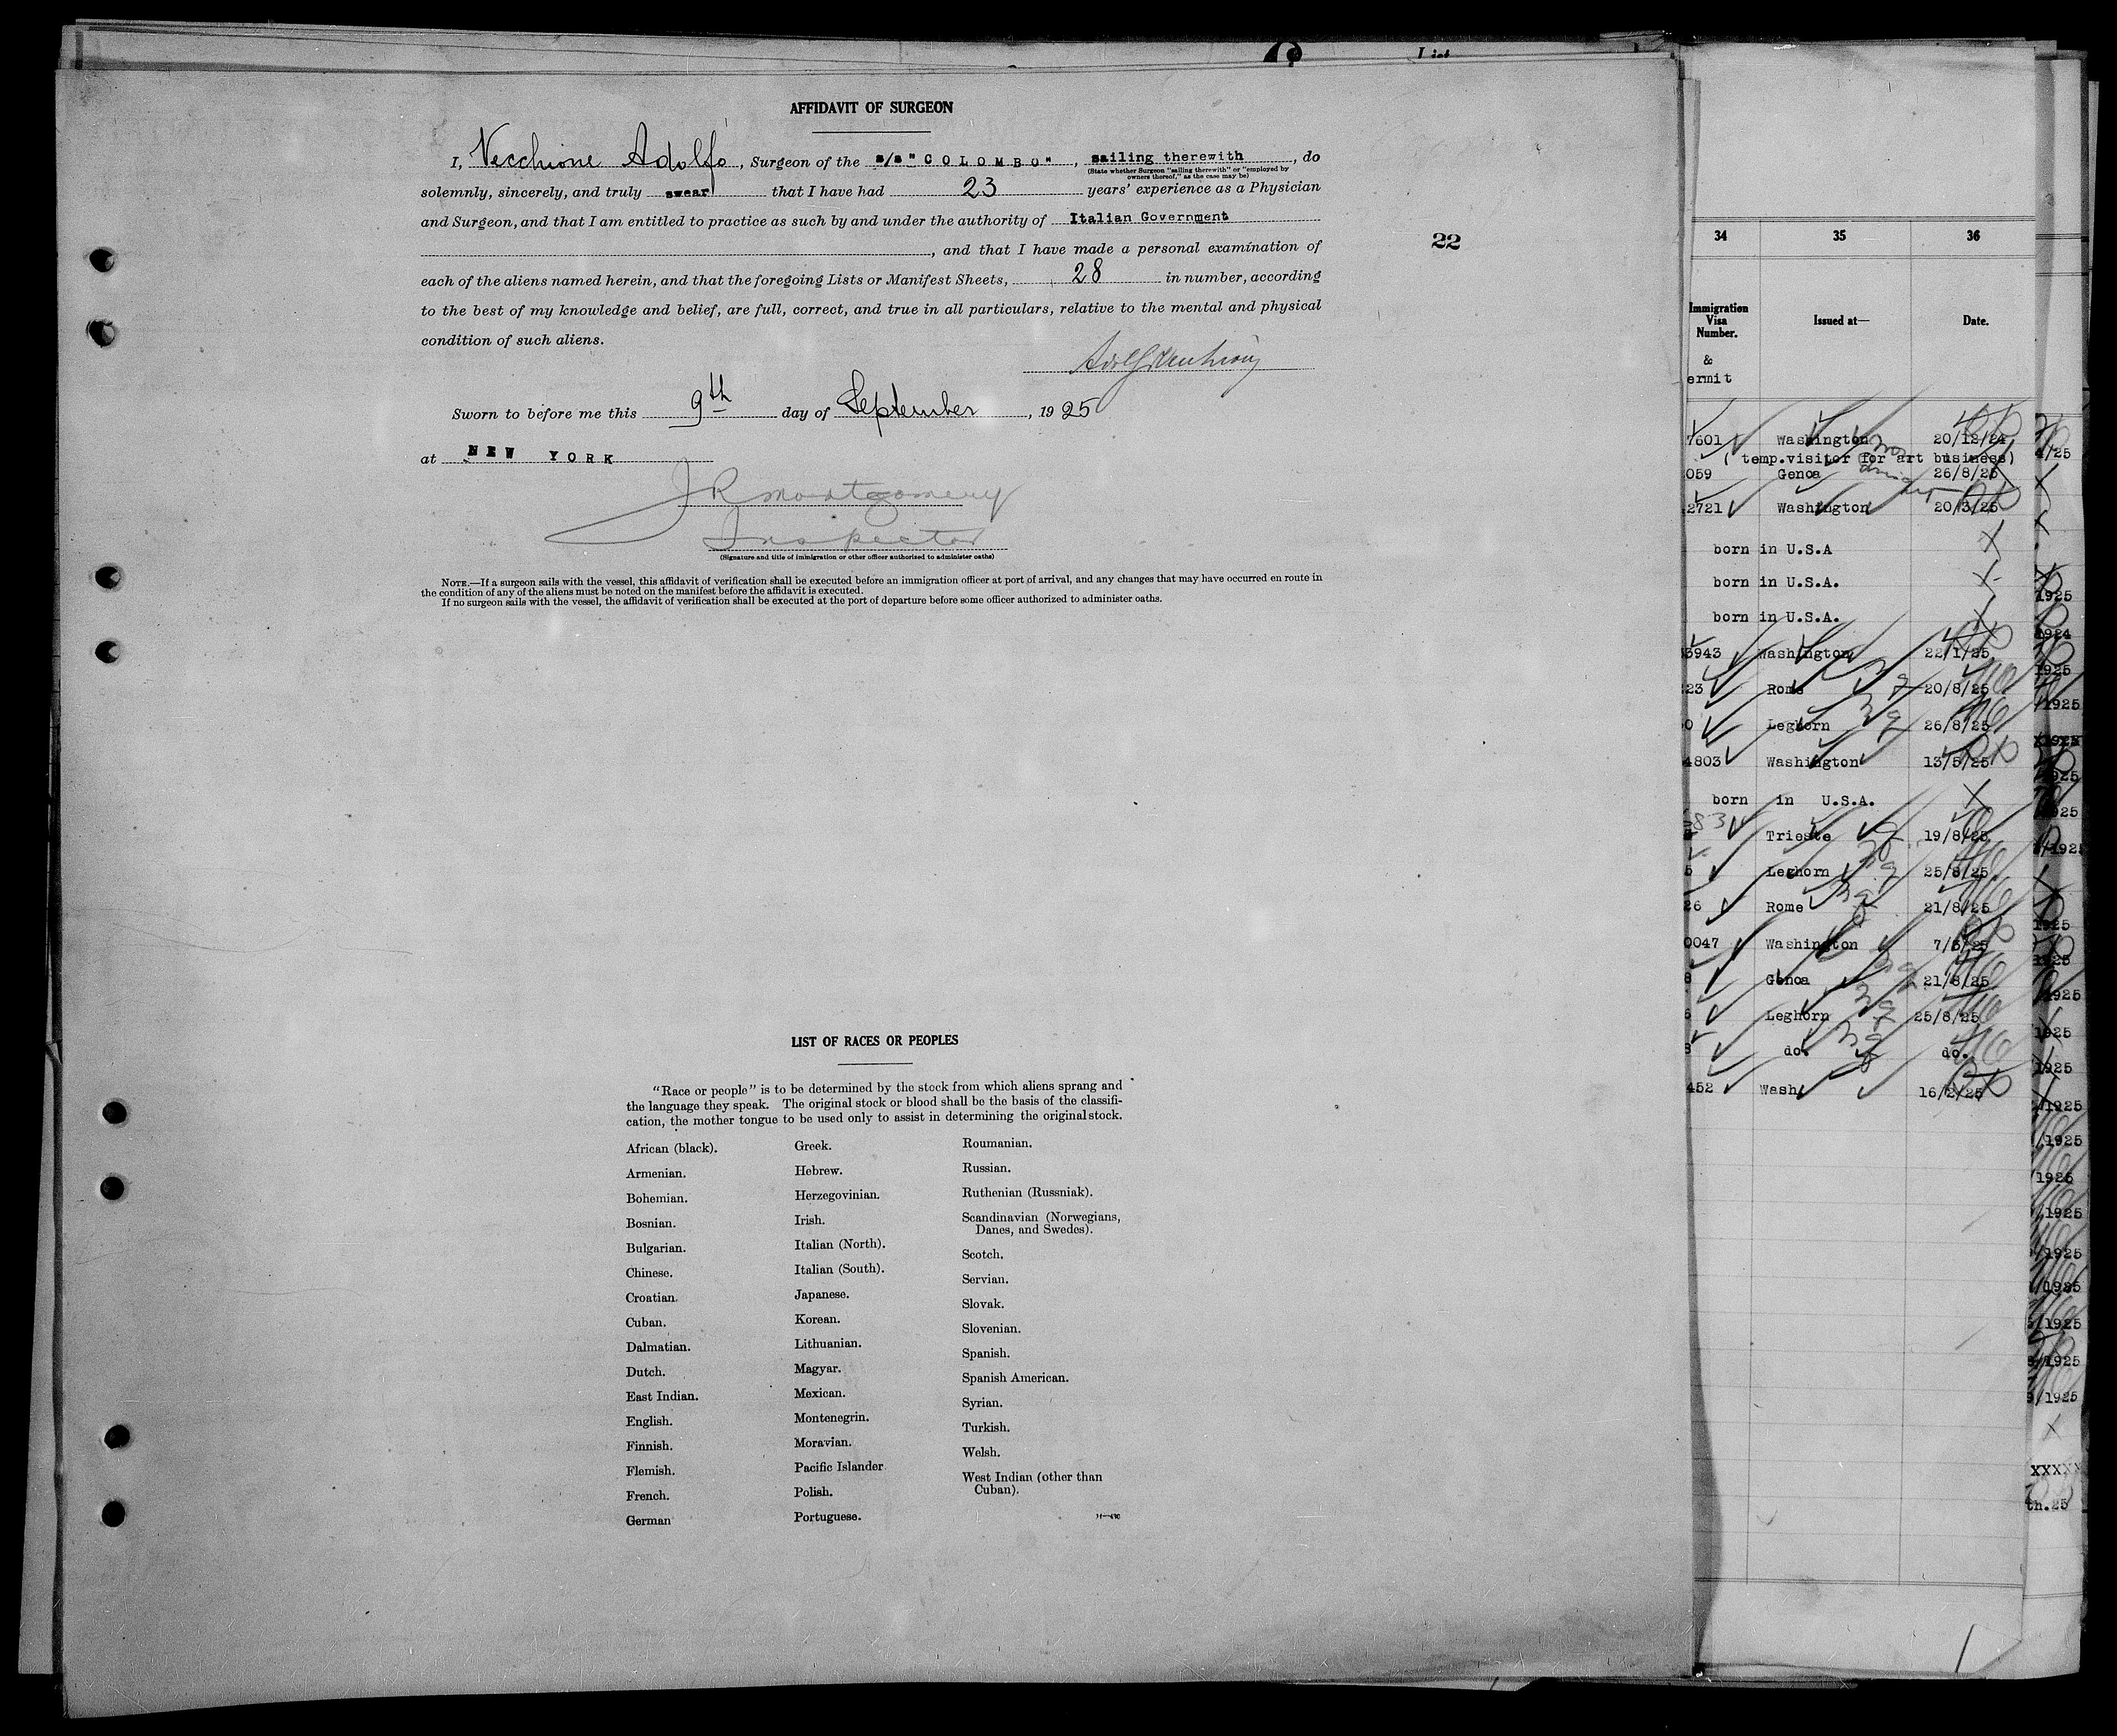 List
AFFIDAVIT OF SURGEON
I, Vecchione Adolfo, Surgeon of the s/s "COLOMBO", sailing therewith, do
(State whether Surgeon "sailing therewith" or "employed by
owners thereof," as the case may be)
solemnly, sincerely, and truly swear that I have had 23 years' experience as a Physician
and Surgeon, and that I am entitled to practice as such by and under the authority of Italian Government
, and that I have made a personal examination of
each of the aliens named herein, and that the foregoing Lists or Manifest Sheets, 28 in number, according
to the best of my knowledge and belief, are full, correct, and true in all particulars, relative to the mental and physical
condition of such aliens.
Sworn to before me this 9th day of September, 1925
at NEW YORK
J R Montgomery
Inspector
(Signature and title of immigration or other officer authorized to administer oaths)
NOTE.—If a surgeon sails with the vessel, this affidavit of verification shall be executed before an immigration officer at port of arrival, and any changes that may have occurred en route in
the condition of any of the aliens must be noted on the manifest before the affidavit is executed.
If no surgeon sails with the vessel, the affidavit of verification shall be executed at the port of departure before some officer authorized to administer oaths.
22
LIST OF RACES OR PEOPLES
"Race or people" is to be determined by the stock from which aliens sprang and
the language they speak. The original stock or blood shall be the basis of the classifi-
cation, the mother tongue to be used only to assist in determining the original stock.
African (black).
Armenian.
Bohemian.
Bosnian.
Bulgarian.
Chinese.
Croatian.
Cuban.
Dalmatian.
Dutch.
East Indian.
English.
Finnish.
Flemish.
French.
German
Greek.
Hebrew.
Herzegovinian.
Irish.
Italian (North).
Italian (South).
Japanese.
Korean.
Lithuanian.
Magyar.
Mexican.
Montenegrin.
Moravian.
Pacific Islander
Polish.
Portuguese.
Roumanian.
Russian.
Ruthenian (Russniak).
Scandinavian (Norwegians,
Danes, and Swedes).
Scotch.
Servian.
Slovak.
Slovenian.
Spanish.
Spanish American.
Syrian.
Turkish.
Welsh.
West Indian (other than
Cuban).
34 35 36
Immigration
Visa
Number.
&
ermit
Issued at—
Date.
7601 Washington 20/12/24
( temp.visitor for art business)
059 Genoa 26/8/25
2721 Washington 20/3/25
born in U.S.A
born in U.S.A.
born in U.S.A.
3943 Washington 22/1/25
23 Rome 20/8/25
0 Leghorn 26/8/25
4803 Washington 13/5/25
born in U.S.A.
Trieste 19/8/25
5 Leghorn 25/8/25
26 Rome 21/8/25
0047 Washington 7/3/25
8 Genoa 21/8/25
6 Leghorn 25/8/25
8 do. do.
452 Wash. 16/2/25